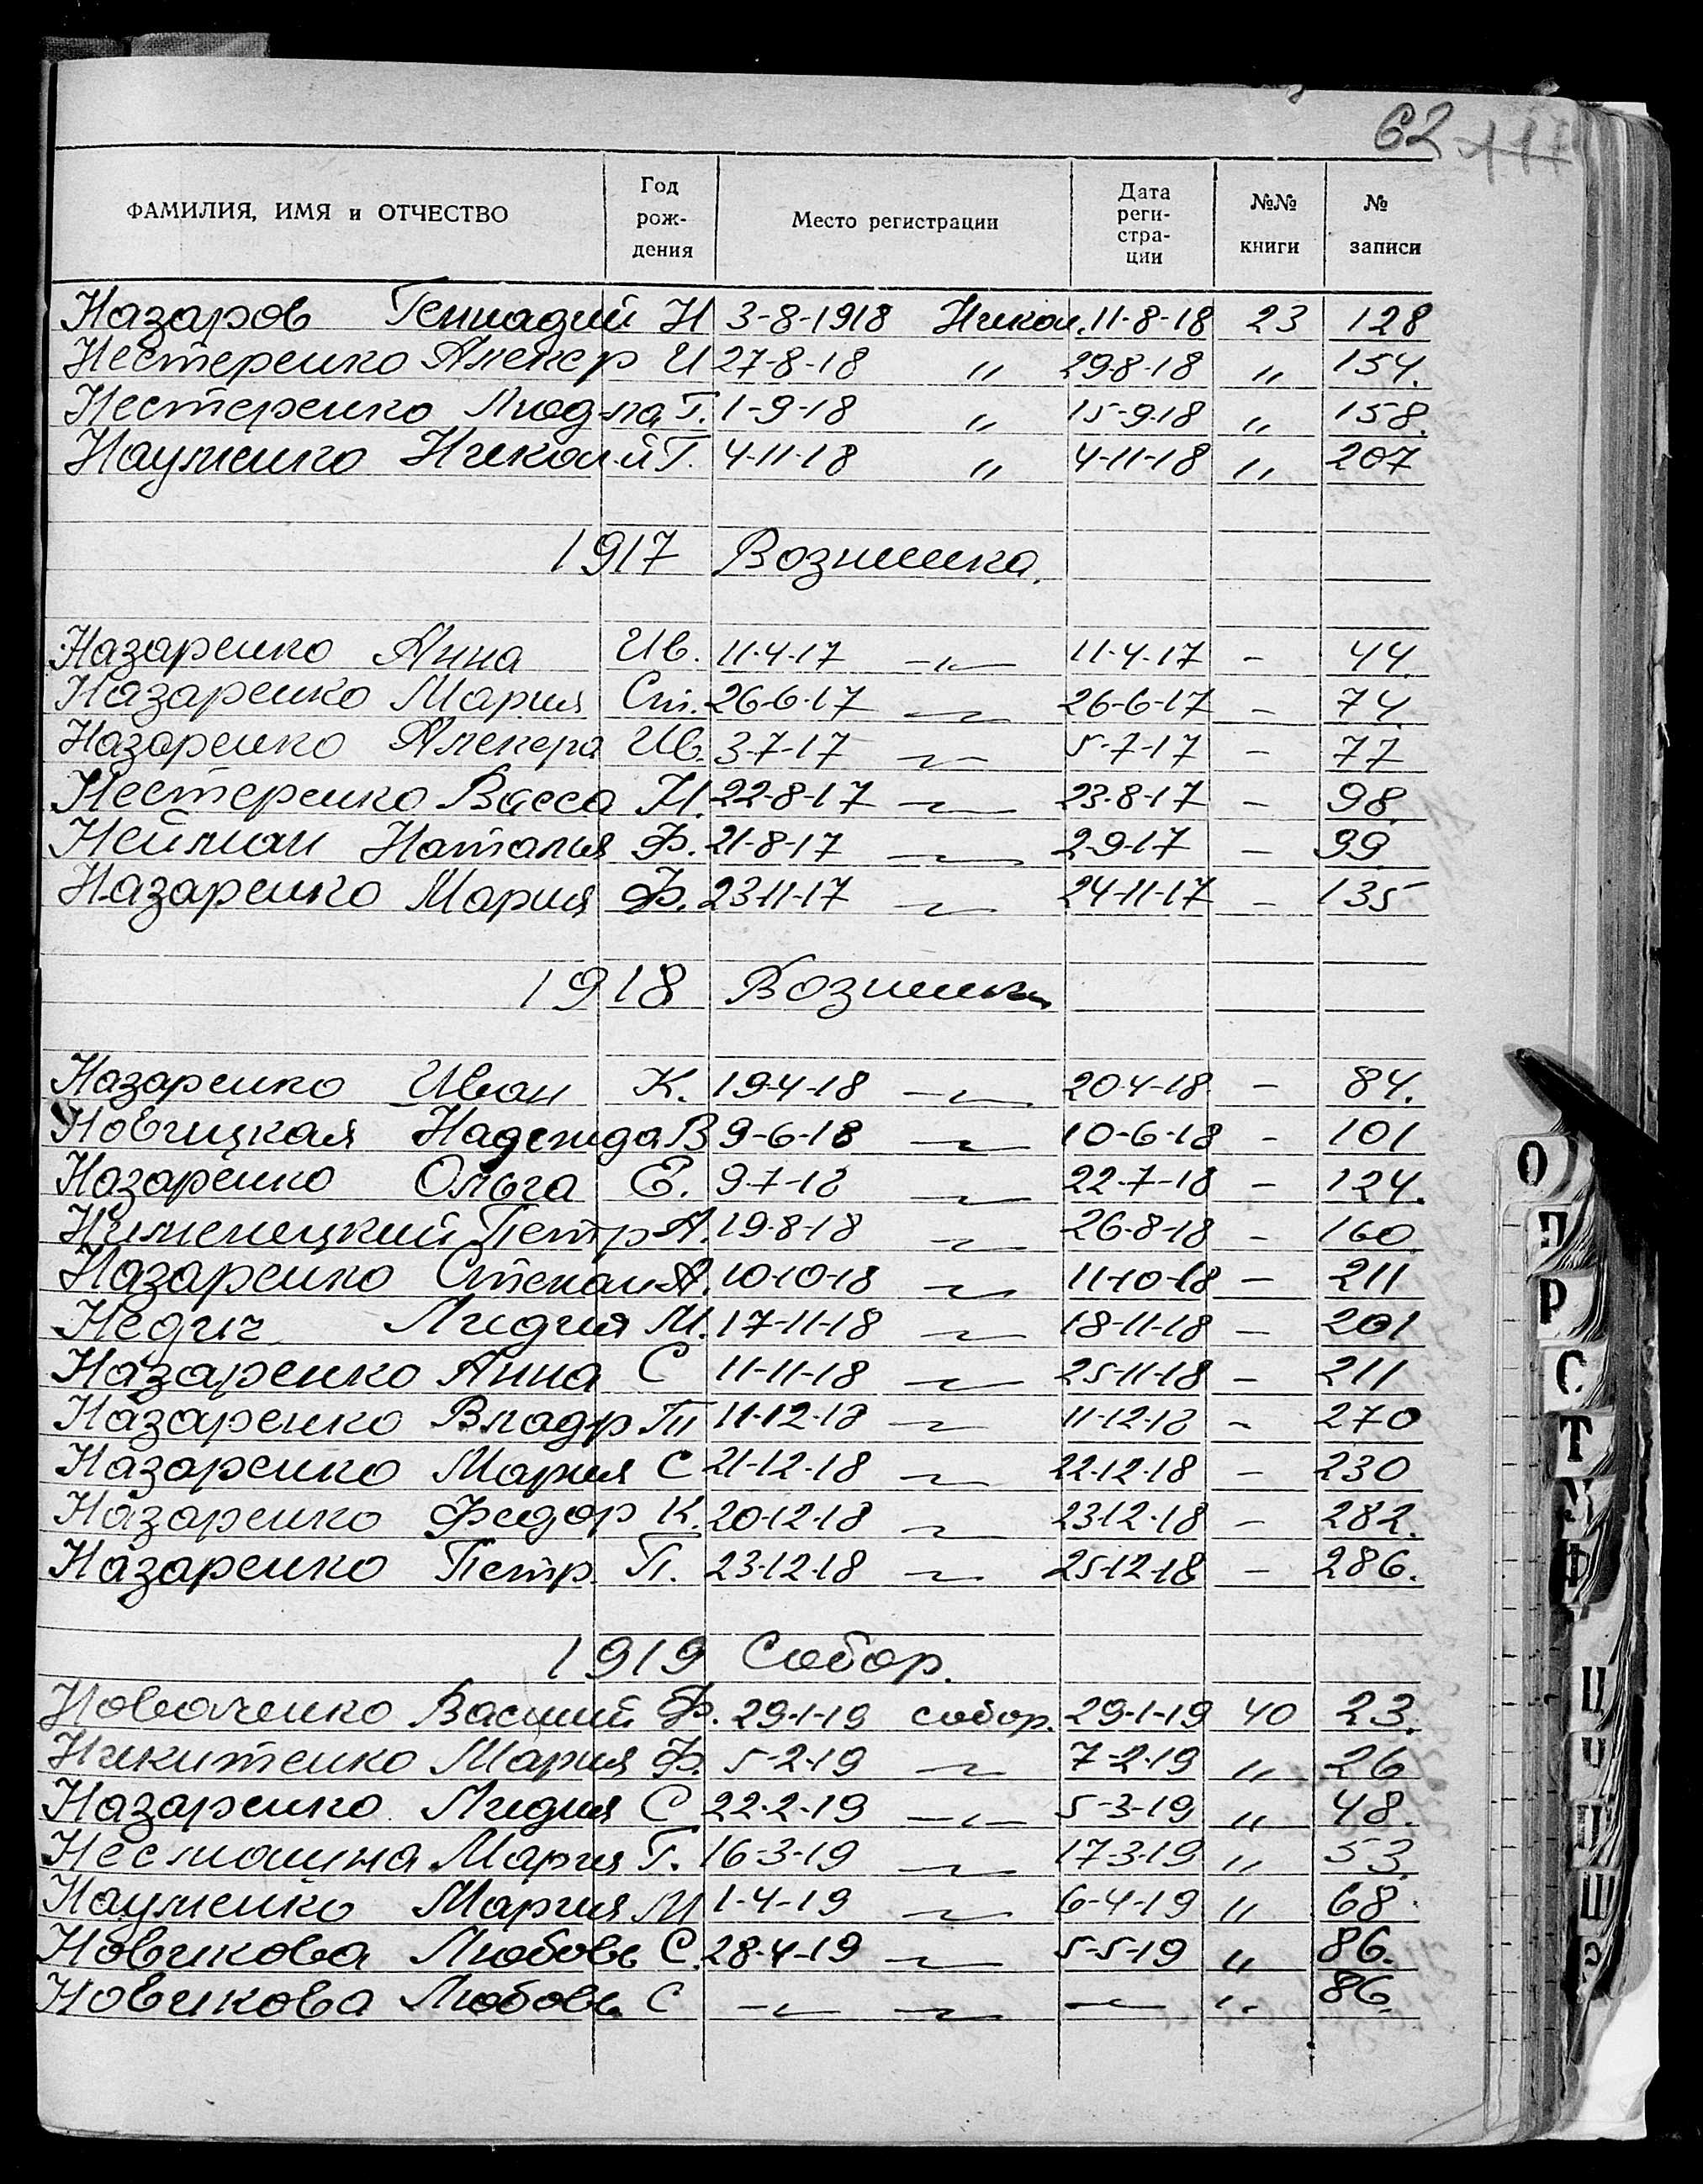 62 117
ФАМИЛИЯ, ИМЯ и ОТЧЕСТВО Год рож-дения Место регистрации Дата реги-стра-ции №№ книги № записи
Назаров Геннадий Н 3-8-1918 Никол. 11-8-18 23 128
Нестеренко Алекср И 27-8-18 " 29-8-18 " 154.
Нестеренко Люд-ла Г. 1-9-18 " 15-9-18 " 158.
Науменко Никол-й Г. 4-11-18 " 4-11-18 " 207
1917 Вознешка.
Назаренко Анна Ив. 11-4-17 -"- 11-4-17 - 44.
Назаренко Мария Ст. 26-6-17 -"- 26-6-17 - 74.
Назаренко Алексра Ив. 3-7-17 -"- 5-7-17 - 77
Нестеренко Васса Н. 22-8-17 -"- 23-8-17 - 98.
Нейман Наталья Ф. 21-8-17 -"- 2-9-17 - 99
Назаренко Мария Ф. 23-11-17 -"- 24-11-17 - 135
1918 Вознешка
Назаренко Иван К. 19-4-18 -"- 20-4-18 - 84.
Новицкая Надежда В 9-6-18 -"- 10-6-18 - 101
Назаренко Ольга Е. 9-7-18 -"- 22-7-18 - 124.
Нименецкий Петр А. 19-8-18 -"- 26-8-18 - 160
Назаренко Степан А. 10-10-18 -"- 11-10-18 - 211
Недич Лидия М. 17-11-18 -"- 18-11-18 - 201
Назаренко Анна С 11-11-18 -"- 25-11-18 - 211
Назаренко Владр П 11-12-18 -"- 11-12-18 - 270
Назаренко Мария С 21-12-18 -"- 22-12-18 - 230
Назаренко Федор К. 20-12-18 -"- 23-12-18 - 282.
Назаренко Петр. П. 23-12-18 -"- 25-12-18 - 286.
1919 Собор.
Новаченко Василий Ф. 29-1-19 собор. 29-1-19 40 23.
Никитенко Мария Ф. 5-2-19 -"- 7-2-19 " 26
Назаренко Лидия С 22-2-19 -"- 5-3-19 " 48.
Несмашная Мария Г. 16-3-19 -"- 17-3-19 " 53.
Науменко Мария М 1-4-19 -"- 6-4-19 " 68.
Новикова Любовь С. 28-4-19 -"- 5-5-19 " 86.
Новикова Любовь С -"- -"- -"- " 86.
О
П
Р
С
Т
У
Ф
Ц
Ч
Ш
Э